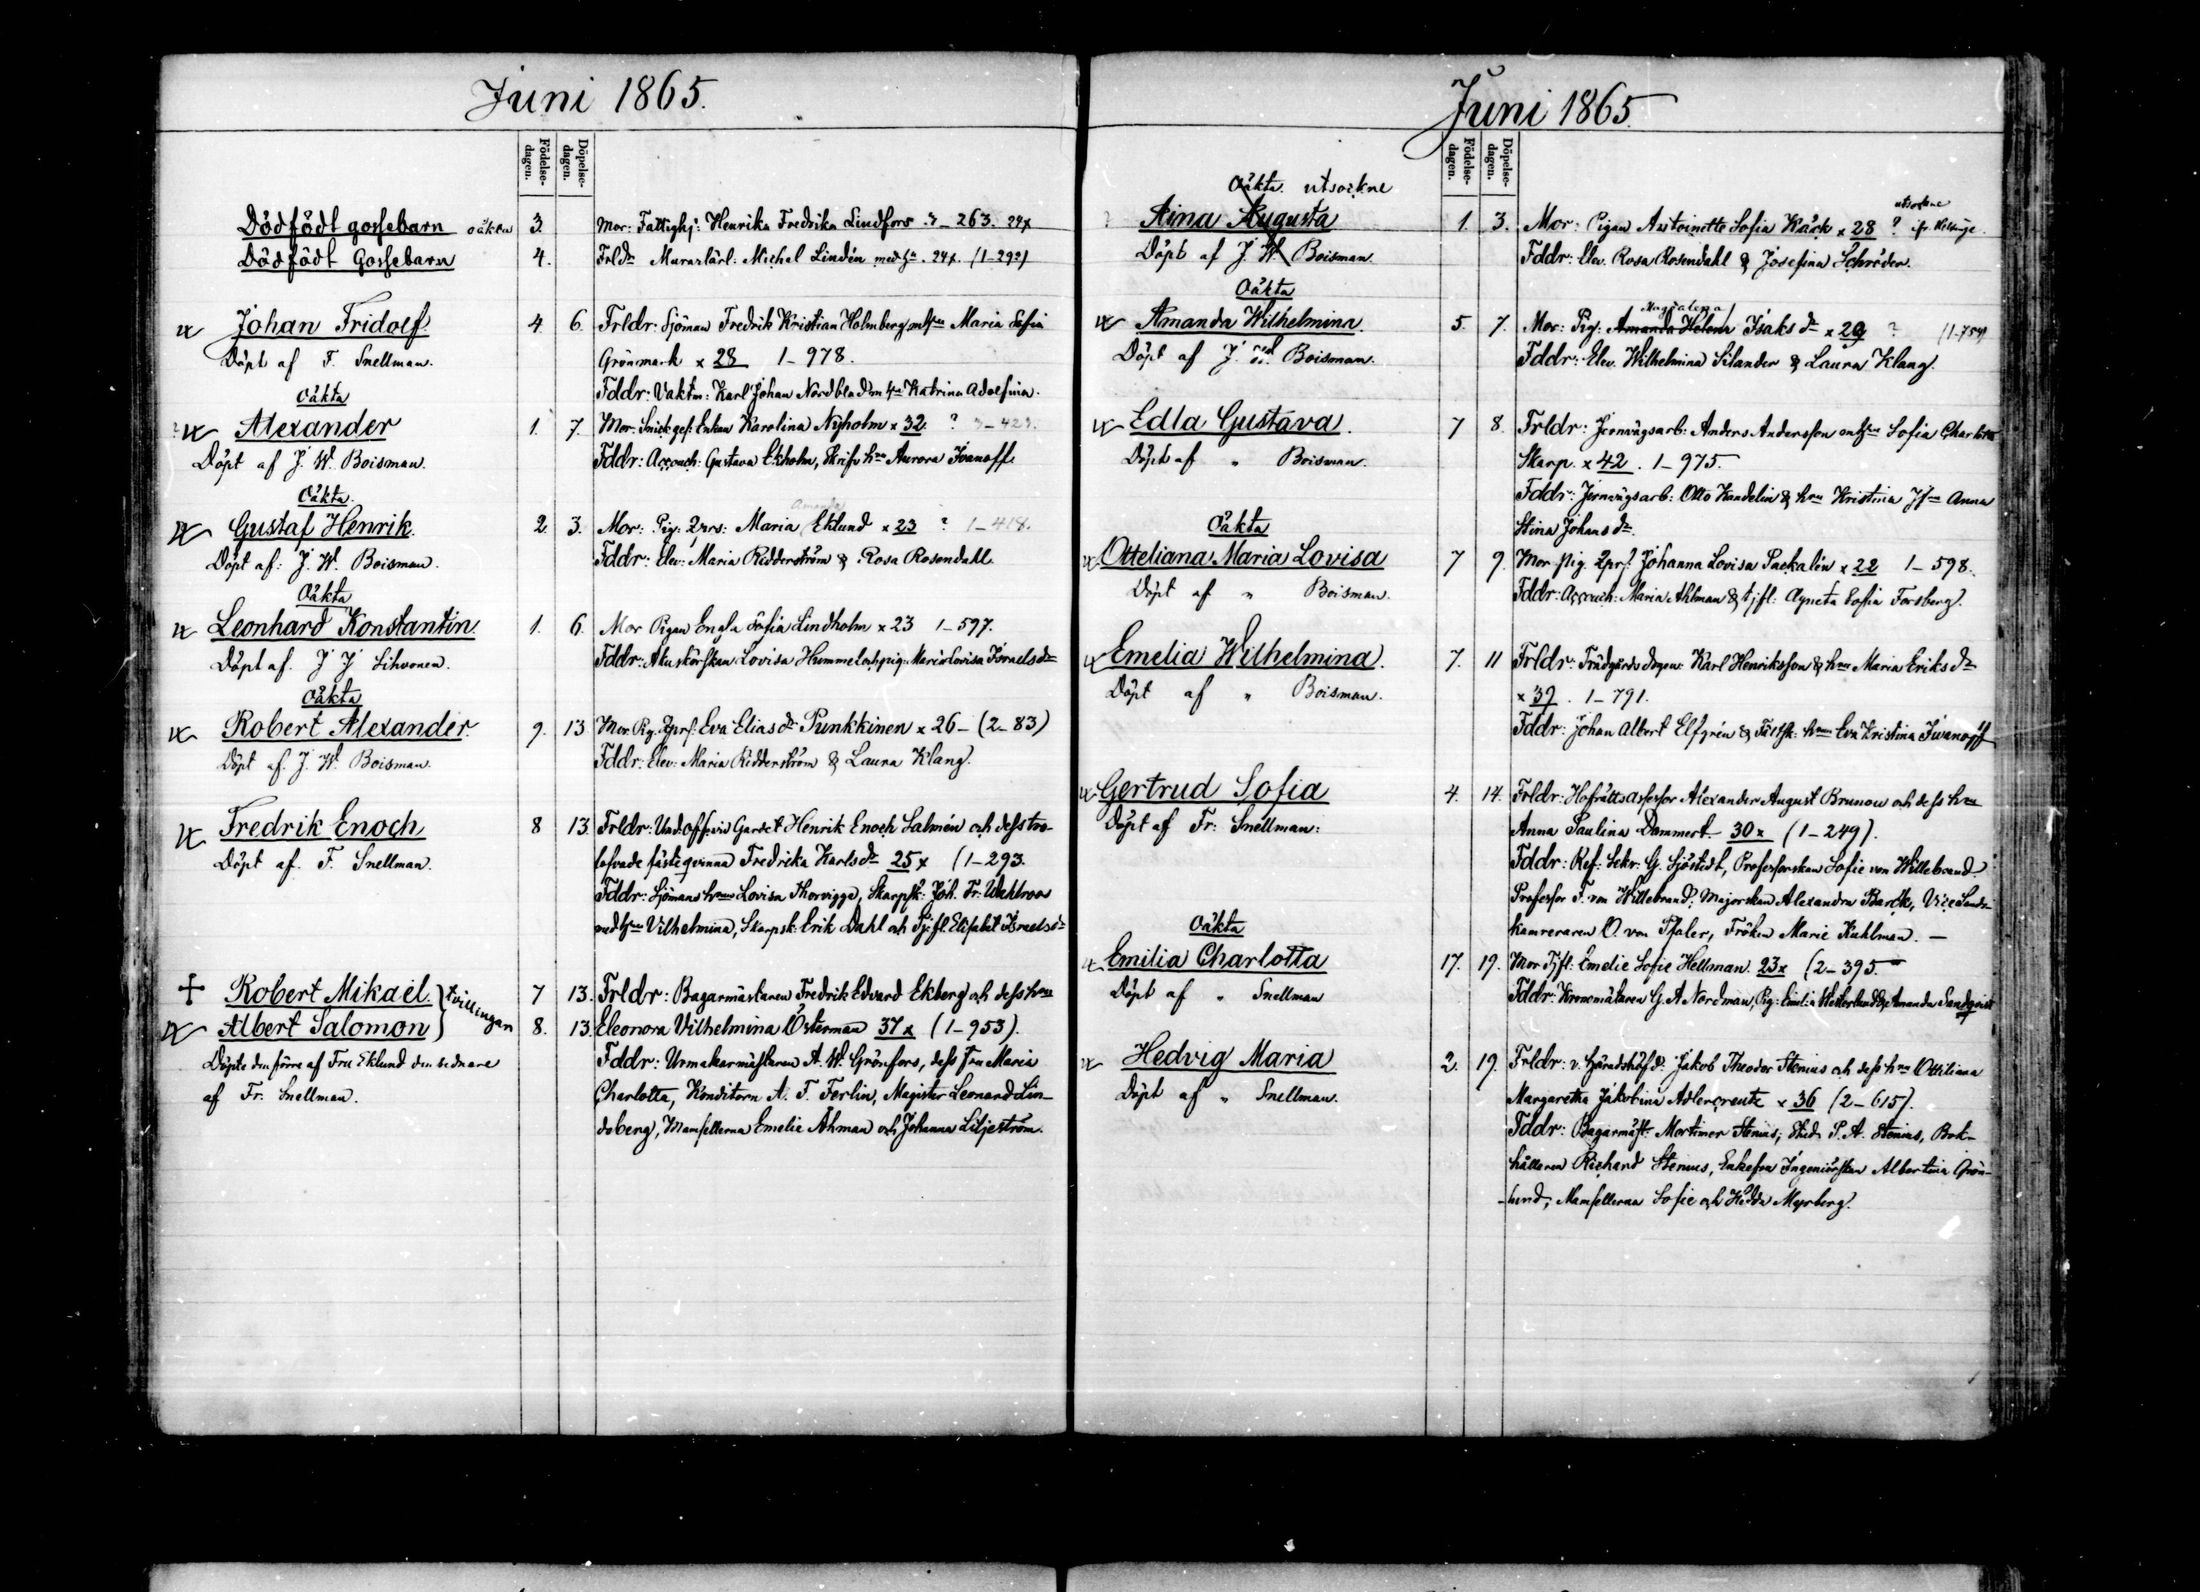 Juni 1865.
Födelse-dagen.
Döpelse-dagen.
Dödfödt gossebarn oäkta 3. Mor: Fattighj: Henrika Fredrika Lindfors 3-263. 24x
Dödfödt Gossebarn 4. Frldr Murarlärl: Michel Lindén med hu. 24x. (1-292)
Johan Fridolf. 4. 6. Frldr: Sjöman Fredrik Kristian Holmberg m hu Maria Sofia
Döpt af F. Snellman. Grönmark x 28 1-978.
Fddr: Vaktm: Karl Johan Nordblad m hu Katrina Adolfina.
Oäkta
Alexander 1. 7. Mor: Snickges: Enkan Karolina Nyholm x 32. ? 3-423.
Döpt af J. W. Boisman. Fddr: Accouch: Gustava Ekholm, Skrifv hru Aurora Ivanoff.
Oäkta.
Amanda
Gustaf Henrik. 2. 3. Mor: Pig: 2prs: Maria Eklund x 23 ? 1-418.
Döpt af: J. W. Boisman. Fddr: Elev: Maria Ridderström & Rosa Rosendahl.
Oäkta
Leonhard Konstantin. 1. 6. Mor Pigan Engla Sofia Lindholm x 23 1-597.
Döpt af. J J Sihvonen. Fddr: Akuskörskan Lovisa Hummel och pig: Maria Lovisa Israelsdr
Oäkta
Robert Alexander. 9. 13 Mor. Pig. 2prs: Eva Eliasdr Punkkinen x 26- (2-83)
Döpt af. J. W. Boisman. Fddr: Elev: Maria Ridderström & Laura Klang.
Fredrik Enoch 8 13. Frldr: Und:offc vid Gardet Henrik Enoch Salmén och dess tro-
Döpt af. F. Snellman. lofvade fästeqvinna Fredrika Karlsdr 25x (1-293.
Fddr: Sjömans hru Lovisa Thorvigge, Skarpsk: Joh. Fr. Wahlroos
med hu Vilhelmina, Skarpsk: Erik Dahl och Tj:fl. Elisabet Israelsdr
Robert Mikael. } tvillingar 7 13. Frldr: Bagarmästaren Fredrik Edvard Ekberg och dess hru
Albert Salomon 8. 13. Eleonora Vilhelmina Österman 37x (1-953).
Döpte den förre af Fru Eklund den sednare Fddr: Urmakarmästaren A. W. Grönfors, dess fru Maria
af Fr. Snellman. Charlotta, Konditorn A. F. Ferlin, Magister Leonard Lin-
deberg, Mamsellerna Emelie Åhman och Johanna Liljeström.
Juni 1865.
Födelse-dagen.
Döpelse-dagen.
Oäkta. utsockne
utsockne
Aina Augusta 1. 3. Mor: Pigan Antoinette Sofia Käck x 28 ? ifr. Helsinge.
Döpt af J. W. Boisman. Fddr: Elev. Rosa Rosendahl & Josefina Schröder.
Oäkta
Magdalena
Amanda Wilhelmina. 5. 7. Mor: Pig: Amanda Helena Isaksdr x 29 ? (1-754)
Döpt af J. W. Boisman. Fddr: Elev. Wilhelmina Silander & Laura Klang.
Edla Gustava. 7 8. Frldr: Jernvägsarb: Anders Andersson m hu Sofia Charlotta
Döpt af " Boisman. Skarp. x 42. 1-975.
Fddr: Jernvägsarb: Otto Kandelin & hru Kristina Jfru Anna
Stina Johansdr
Oäkta
Otteliana Maria Lovisa 7 9. Mor pig 2prs: Johanna Lovisa Packalén x 22 1-598.
Döpt af " Boisman. Fddr: Accouch: Maria Ahlman & tjfl: Agneta Sofia Forsberg.
Emelia Wilhelmina. 7. 11 Frldr: Trädgårds dregen Karl Henriksson & hru Maria Eriksdr
Döpt af " Boisman. x 39. 1-791.
Fddr: Johan Albert Elfgrén & Fältsk: hru Eva Kristina Iwanoff
Gertrud Sofia 4. 14. Frldr: Hofrättsassessor Alexander August Brunow och dess hru
Döpt af Fr: Snellman: Anna Paulina Dammert. 30x (1-249).
Fddr: Ref: Sekr: G. Sjöstedt, Professorskan Sofie von Willebrand.
Professor F. von Willebrand; Majorskan Alexandra Barck, Vice Lands-
kamreraren O. von Pfaler, Fröken Marie Kuhlman. —
Oäkta
Emilia Charlotta 17. 19. Mor Tjfl: Emelie Sofie Hellman. 23x (2-395.
Döpt af " Snellman Fddr: Kronomätaren G. A Nordman, Pig: Emilia Westerlund & Amanda Sandqvist
Hedvig Maria 2. 19. Frldr: v. Häradshöfd: Jakob Theodor Stenius och dess hru Ottiliana
Döpt af " Snellman. Margaretha Jakobina Adlercreutz x 36 (2-615).
Fddr: Bagarmäst: Mortimer Stenius, Stud. P. A. Stenius, Bok-
hållaren Richard Stenius, Enkefru Ingeniörskan Albertina Grön-
lund, Mamsellerna Sofie och Hedda Myrberg.